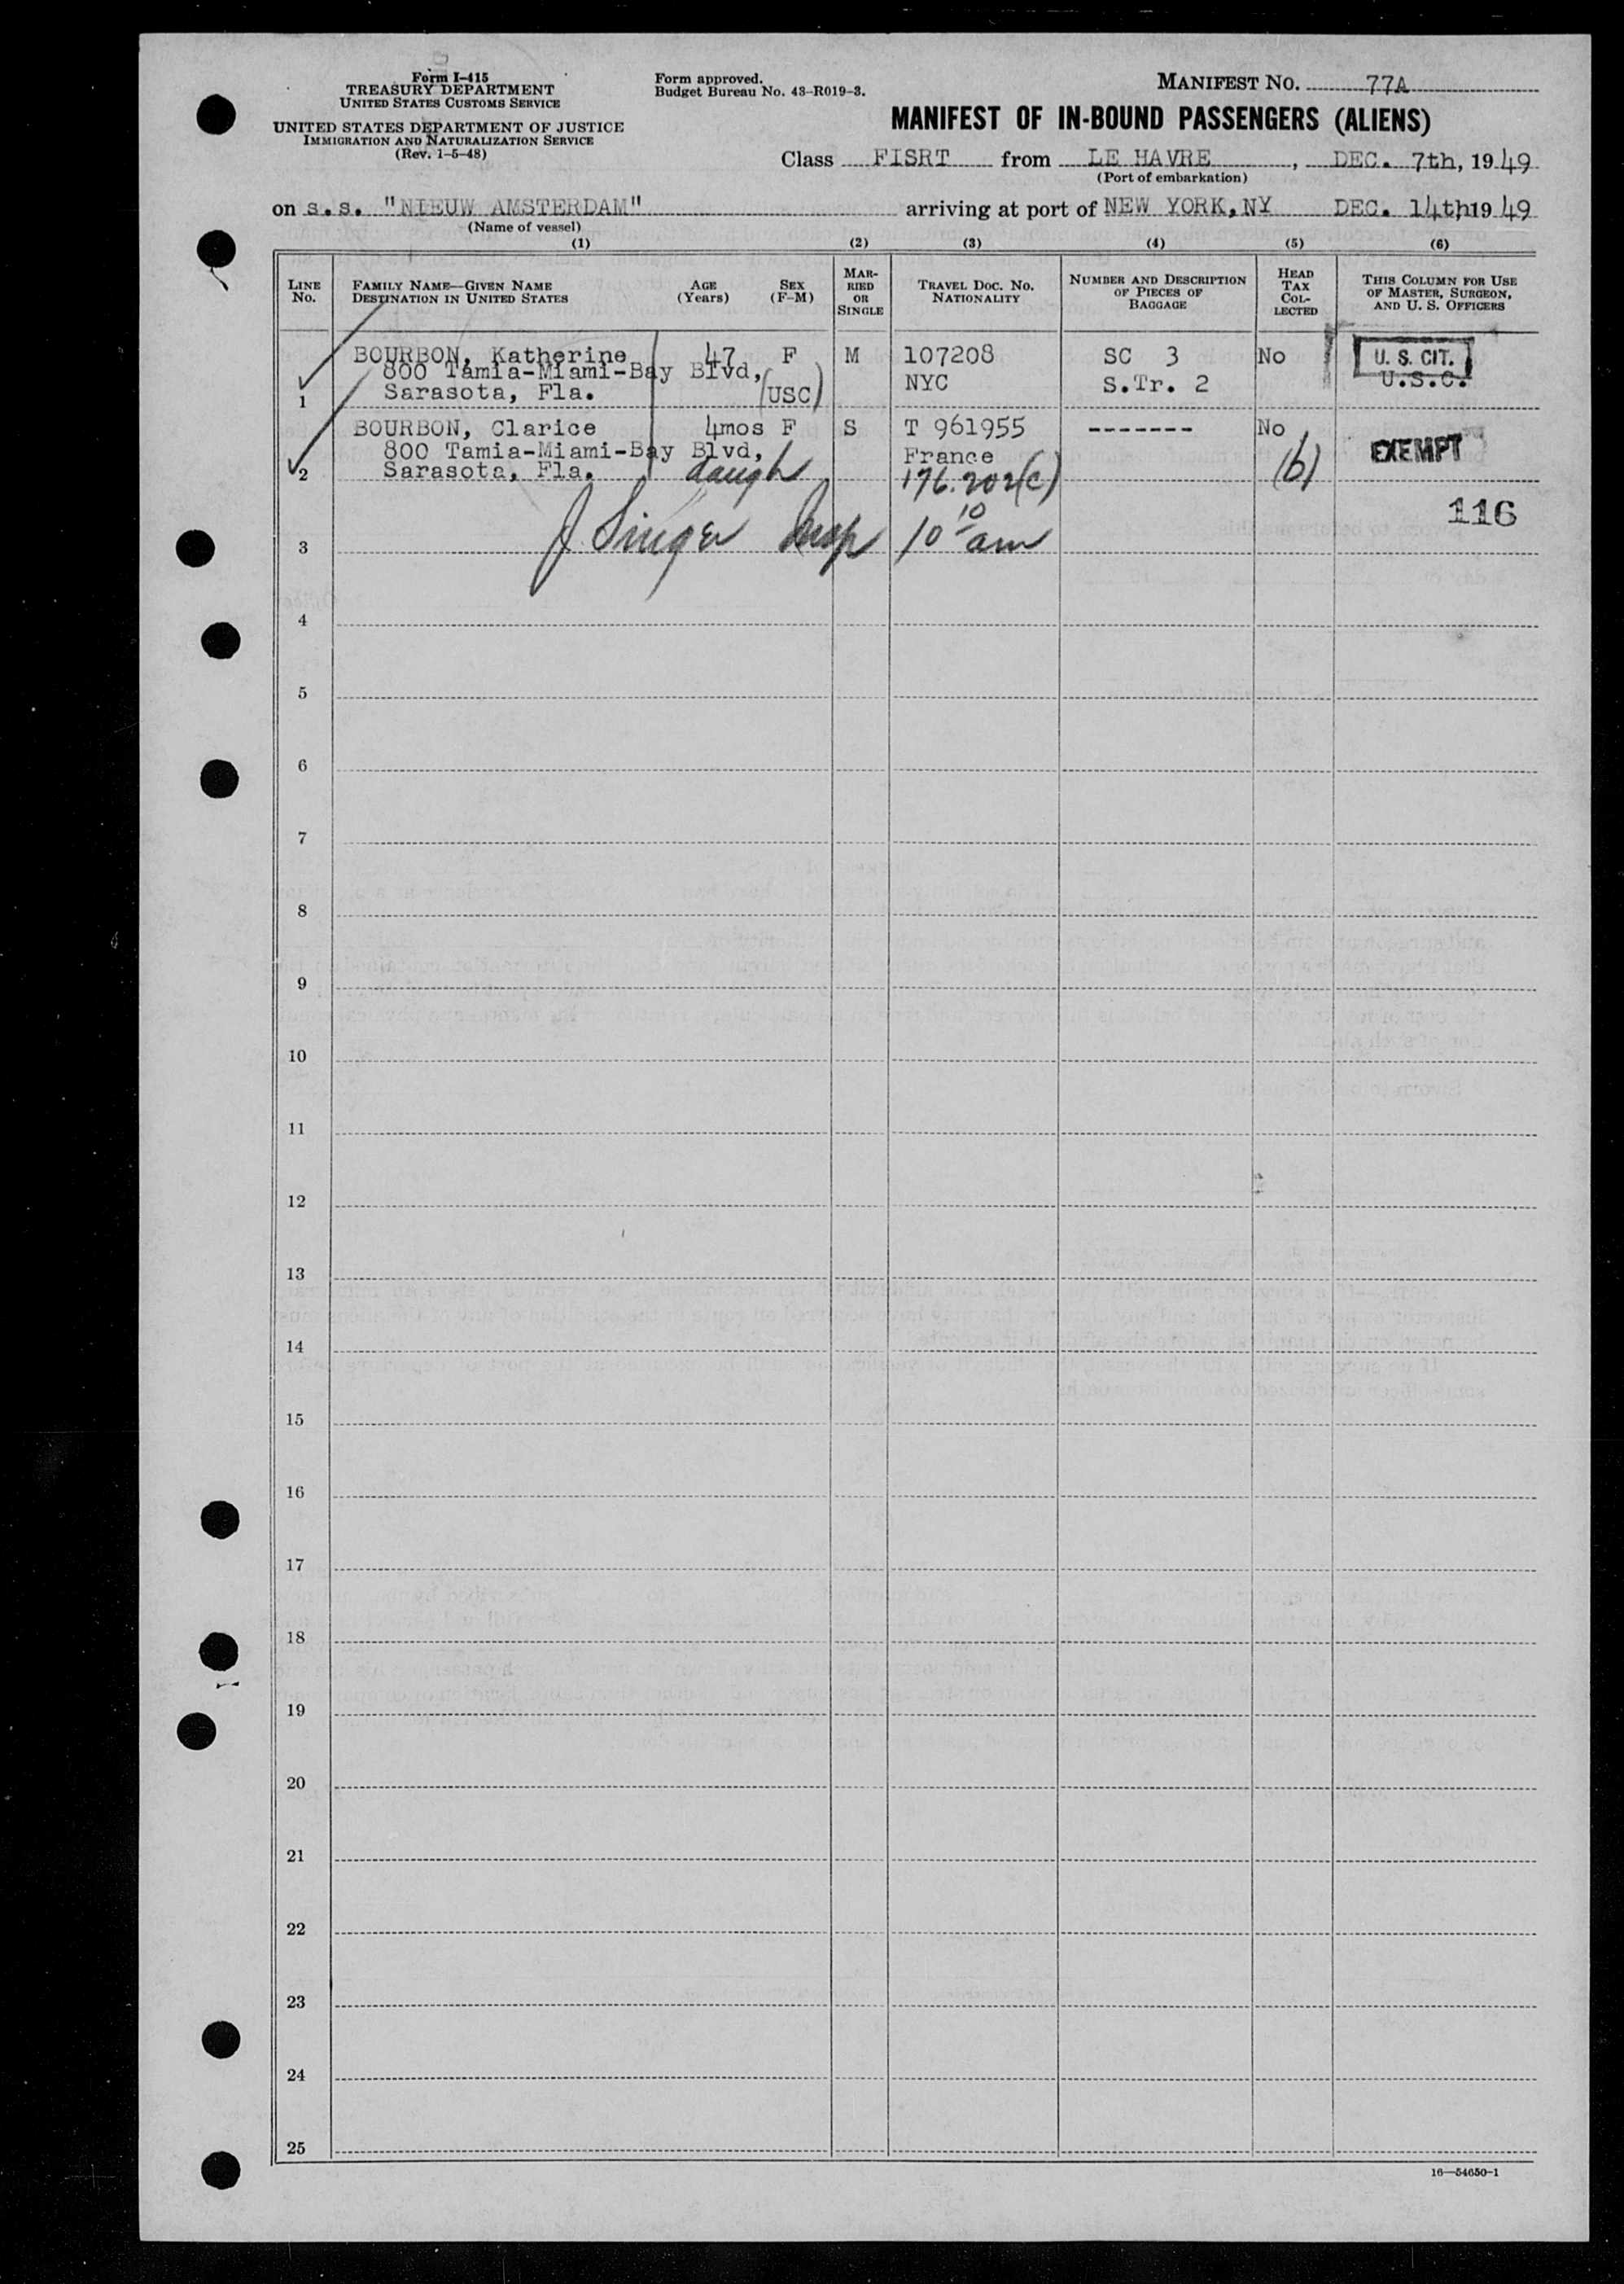 Form I-415
TREASURY DEPARTMENT
UNITED STATES CUSTOMS SERVICE
UNITED STATES DEPARTMENT OF JUSTICE
IMMIGRATION AND NATURALIZATION SERVICE
(Rev. 1-5-48)
Form approved.
Budget Bureau No. 43-R019-3.
MANIFEST NO. 77A
MANIFEST OF IN-BOUND PASSENGERS (ALIENS)
Class FISRT from LE HAVRE, DEC. 7th, 1949
(Port of embarkation)
on s.s. "NIEUW AMSTERDAM" arriving at port of NEW YORK, NY DEC. 14th 1949
(Name of vessel)
(1) (2) (3) (4) (5) (6)
LINE No. FAMILY NAME—GIVEN NAME DESTINATION IN UNITED STATES AGE (Years) SEX (F-M) MARRIED OR SINGLE TRAVEL DOC. NO. NATIONALITY NUMBER AND DESCRIPTION OF PIECES OF BAGGAGE HEAD TAX COLLECTED THIS COLUMN FOR USE OF MASTER, SURGEON, AND U. S. OFFICERS
BOURBON, Katherine 47 F M 107208 SC 3 No U. S. CIT.
800 Tamia-Miami-Bay Blvd, NYC S.Tr. 2 U.S.C.
1 Sarasota, Fla. (USC)
BOURBON, Clarice 4mos F S T 961955 ------- No
800 Tamia-Miami-Bay Blvd, France (b) EXEMPT
2 Sarasota, Fla. daugh 176.202(c)
116
3 J Singer Insp 10 10 am
4
5
6
7
8
9
10
11
12
13
14
15
16
17
18
19
20
21
22
23
24
25
16—54650-1